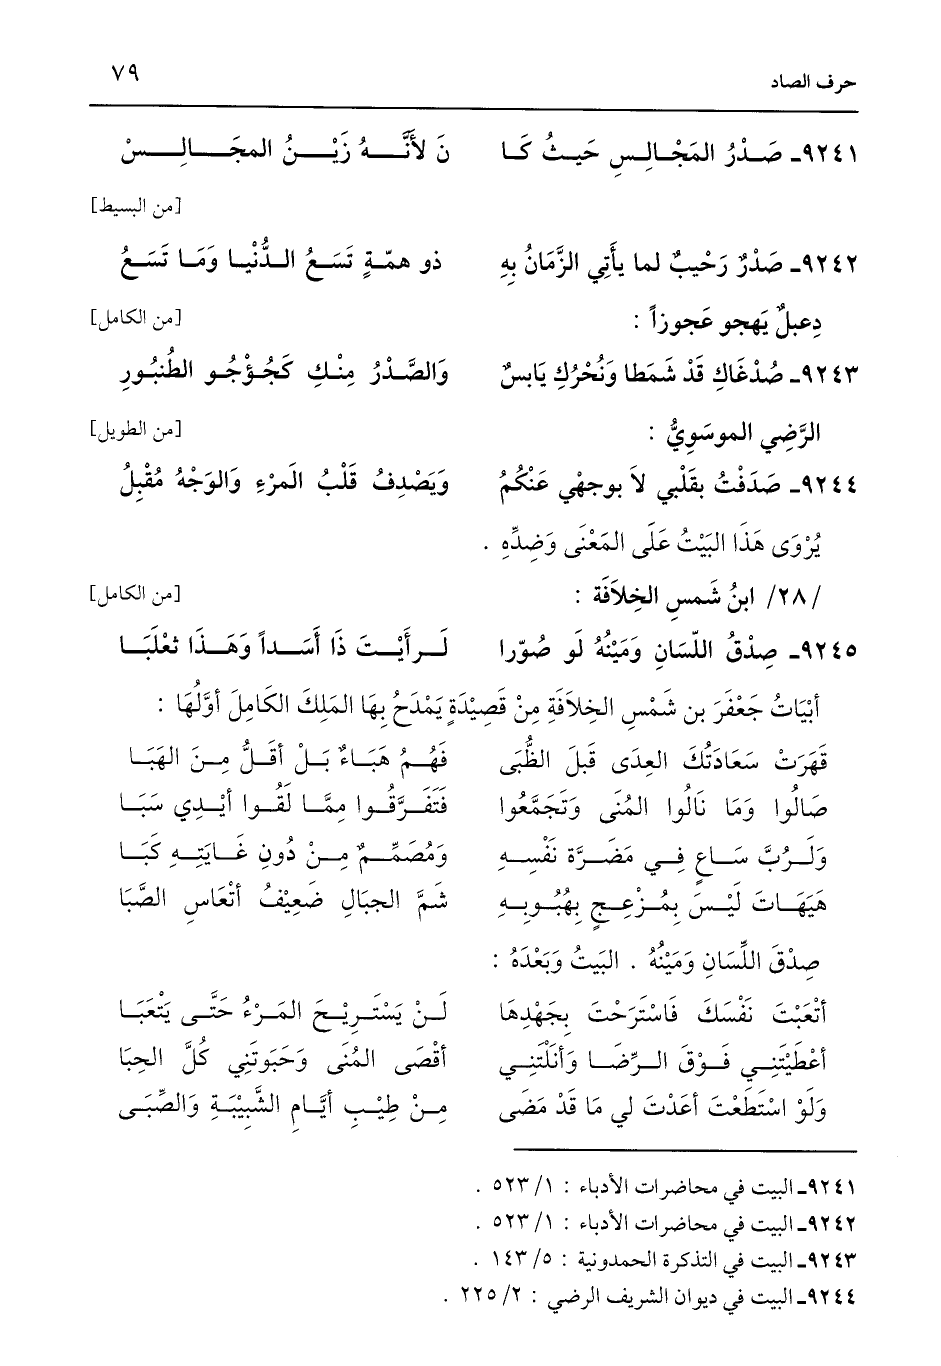 حرف الصاد ٧٩
٩٢٤١ـ صَدْرُ المَجْالِسِ حَيثُ كَا نَ لأَنَّهُ زَيْنُ المجَالِسْ
[من البسيط]
٩٢٤٢ـ صَدْرٌ رَحْيبٌ لما يأَتي الزَّمَانُ بِهِ ذو همّةٍ تَسَعُ الدُّنْيا وَمَا تَسَعُ
دِعبلٌ يَهجو عَجوزاً : [من الكامل]
٩٢٤٣ـ صُدْغَاكِ قَدْ شَمَطا وَنُحْرُكِ يَابسٌ وَالصَّدْرُ مِنْكِ كَجُؤْجُو الطُنبُورِ
الرَّضِي الموسَوِيُّ : [من الطويل]
٩٢٤٤ـ صَدَفْتُ بقَلْبي لاَ بوجهْي عَنْكُمُ وَيَصْدِفُ قَلْبُ المَرْءِ وَالوَجْهُ مُقْبِلُ
يُرْوَى هَذَا البَيْتُ عَلَى المَعْنَى وَضِدِّهِ .
/٢٨/ ابنُ شَمسِ الخِلاَفَة : [من الكامل]
٩٢٤٥ـ صِدْقُ اللّسَانِ وَمَيْنُهُ لَو صُوّرا لَرأَيْتَ ذَا أَسَداً وَهَذَا ثعْلَبَا
أَبْيَاتُ جَعْفَرَ بن شَمْسِ الخِلاَفَةِ مِنْ قَصِيْدَةٍ يَمْدَحُ بِهَا المَلِكَ الكَامِلَ أوَّلُهَا :
قَهَرَتْ سَعَادَتُكَ العِدَى قَبلَ الظُّبَى فَهُمُ هَبَاءٌ بَلْ أقَلُّ مِنَ الهَبَا
صَالُوا وَمَا نَالُوا المُنَى وَتَجَمَّعُوا فَتَفَرَّقُوا مِمَّا لَقُوا أيْدِي سَبَا
وَلَرُبَّ سَاعٍ فِي مَضَرَّة نَفْسِهِ وَمُصَمِّمٌ مِنْ دُونِ غَايَتِهِ كَبَا
هَيَهَاتَ لَيْسَ بِمُزْعِجٍ بِهُبُوبِهِ شَمَّ الجبَالِ ضَعِيْفُ أتْعَاسِ الصَّبَا
صِدْقَ اللِّسَانِ وَمَيْنُهُ . البَيتُ وَبَعْدَهُ :
أتْعَبْتَ نَفْسَكَ فَاسْتَرَحْتَ بِجَهْدِهَا لَنْ يَسْتَرِيْحَ المَرْءُ حَتَّى يَتْعَبَا
أعْطَيْتَنِي فَوْقَ الرِّضَا وَأنَلْتَنِي أقْصَى المُنَى وَحَبَوتَنِي كُلَّ الحِبَا
وَلَوْ اسْتَطَعْتَ أعَدْتَ لي مَا قَدْ مَضَى مِنْ طِيْبِ أيَّامِ الشَّبِيْبَةِ وَالصِّبَى
٩٢٤١ـ البيت في محاضرات الأدباء : ٥٢٣/١ .
٩٢٤٢ـ البيت في محاضرات الأدباء : ٥٢٣/١ .
٩٢٤٣ـ البيت في التذكرة الحمدونية : ١٤٣/٥ .
٩٢٤٤ـ البيت في ديوان الشريف الرضي : ٢٢٥/٢ .